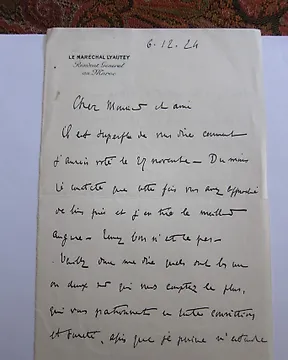 6.12.24
LE MARÉCHAL LYAUTEY
Résident Général
au Maroc
Cher Monsieur et ami
Il est superflu de vous dire comment
j'aurais voté le 27 novembre - Du moins
je constate que cette fois vous avez approché
de bien près et j'en tire le meilleur
augure -
Veuillez donc me dire quels sont les un
ou deux sur qui vous comptez le plus,
qui vous patronnent en toute conviction
et sûreté, afin que je puisse m'entendre